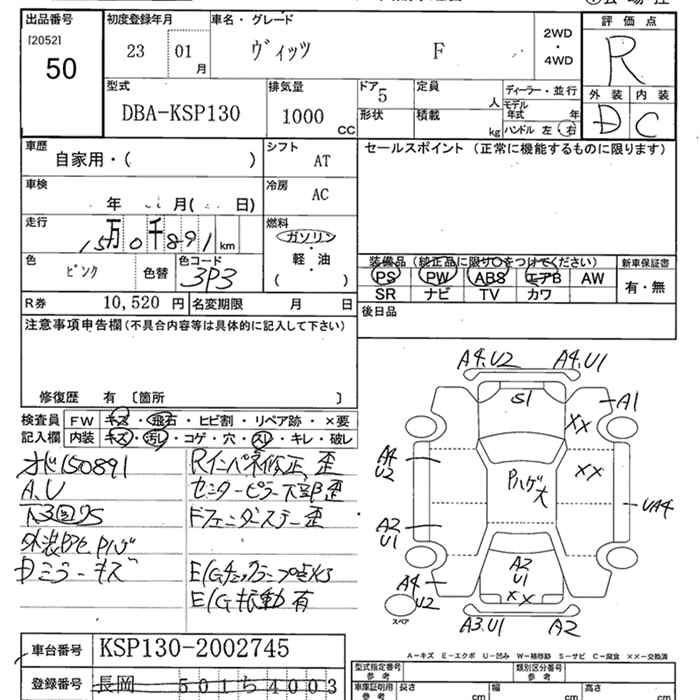 出品番号 初度登録年月 車名・グレード 評価点
[2052] 50 23 01月 ヴィッツ F 2WD・4WD R
型式 排気量 ドア 5 定員 人 ディーラー・並行 外装 内装
DBA-KSP130 1000 CC 形状 積載 kg モデル年式 年 D C
ハンドル 左・右
車歴 自家用・( ) シフト AT セールスポイント (正常に機能するものに限ります)
車検 年 月( 日) 冷房 AC
走行 15万0千891km 燃料 ガソリン・軽・油 ( )
色 ピンク 色替 色コード 3P3
装備品(純正品に限り○をつけてください) 新車保証書
PS PW ABS エアB AW 有・無
SR ナビ TV カワ
R券 10,520円 名変期限 月 日
後日品
注意事項申告欄(不具合内容等は具体的に記入して下さい)
修復歴 有 〔箇所 〕
検査員 FW キズ・飛石・ヒビ割・リペア跡・×要
記入欄 内装 キズ・汚レ・コゲ・穴・スレ・キレ・破レ
150891 Rインパネ修正、歪
A、U センターピラー下部歪
ドフェンダステー歪
外装色ハゲ
Dミラーキズ E/Gチェックランプ点灯
E/G振動有
A4.U2 A4.U1
S1 A1
XX
A4 U2 Pハゲ大 XX
UA4
A2 U1
A2 U1
A4 U2 XX
スペア A3.U1 A2
A−キズ E−エクボ U−凹み W−補修跡 S−サビ C−腐食 XX−交換済
車台番号 KSP130-2002745
登録番号 長岡 501ち4003
型式指定番号 参考 類別区分番号 参考
車庫証明用 参考 長さ cm 幅 cm 高さ cm